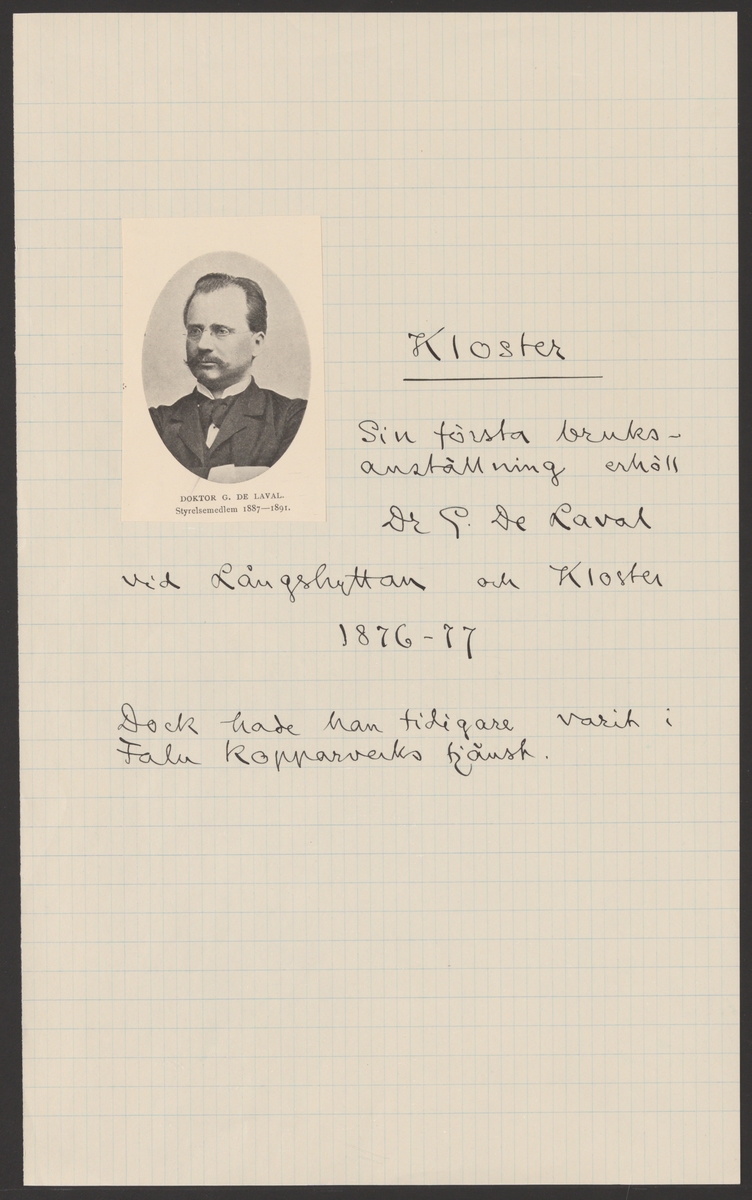 DOKTOR G. DE LAVAL.
Styrelsemedlem 1887—1891.
Kloster
Sin första bruks-
anställning erhöll
Dr G. De Laval
vid Långshyttan och Kloster
1876-77
Dock hade han tidigare varit i
Falu Kopparverks tjänst.